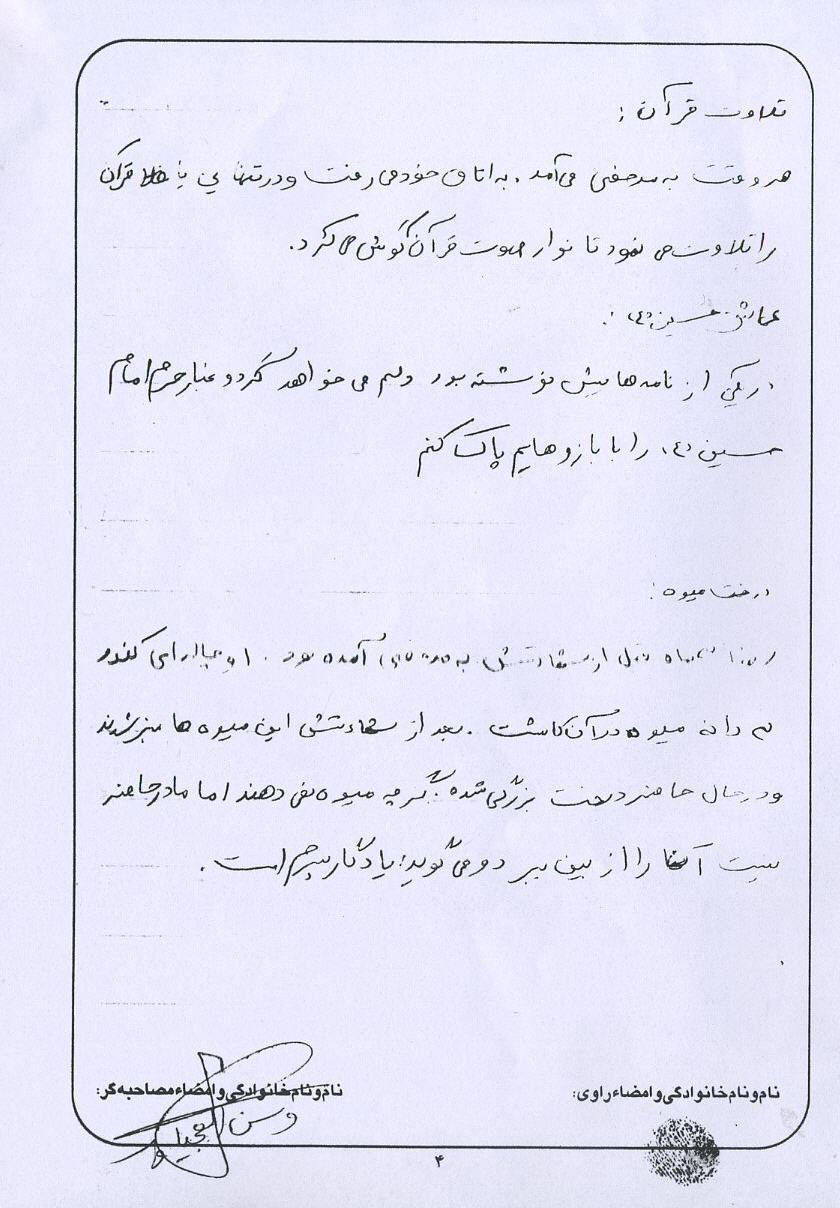 تلاوت قرآن :
هر وقت به مرخصی می آمد . به اتاق خود می رفت و در تنهایی یا قرآن
را تلاوت می نمود تا نوار صوت قرآن گوش می کرد .
حسین (ع) :
در یکی از نامه هایش نوشته بود دلم می خواهد گرد و غبار حرم امام
حسین (ع) را با بازوهایم پاک کنم
درخت میوه :
ماه قبل از شهادتش به مرخصی آمده بود .
دانه میوه در آن کاشت . بعد از شهادتش این میوه ها سبز شدند
و در حال حاضر درخت بزرگی شده اگر چه میوه نمی دهند اما مادر حاضر
نیست آنها را از بین ببرد و می گوید : یادگار پسرم است .
نام و نام خانوادگی و امضاء راوی:
نام و نام خانوادگی و امضاء مصاحبه گر:
۴